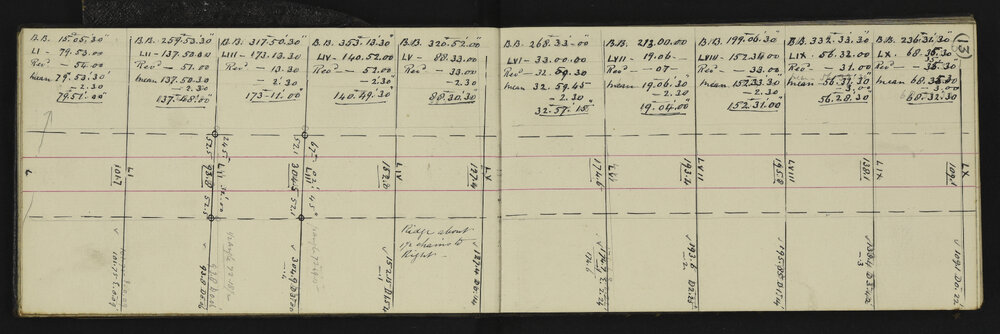 B.B. 15.05.30"
LI - 79.53.00
Rev^d - 54.00
mean 79.53.30"
- 2.30
79.51.00"
B.B. 259.53.30"
LII - 137.50.00
Rev^d - 51.00
Mean 137.50.30
- 2.30
137.48.00"
B.B. 317.50.30"
LIII - 173.13.30
Rev^d - 13.30
- 2.30
173-11.00"
B.B. 353.13.30"
LIV - 140.52.00
Rev^d - 52.00
- 2.30
140.49.30"
B.B. 320.52.00"
LV - 88.33.00
Rev^d - 33.00
- 2.30
88.30.30"
B.B. 268.33.00"
LVI - 33.00.00
Rev^d - 32.59.30
mean 32.59.45
- 2.30
32.57.15"
B.B. 213.00.00
LVII - 19.06-
Rev^d - 07-
mean 19.06.30"
- 2.30
19.04.00"
B.B. 199.06.30"
LVIII - 152.34.00
Rev^d - 33.00
mean 152.33.30"
- 2.30
152.31.00"
B.B. 332.33.30"
LIX - 56.32.00
Rev^d - 31.00
mean 56.31.30
- 3.00
56.28.30
B.B. 236.31.30"
LX. 68.35.30
Rev^d - 35.30
mean 68.35.30
- 3.00
68.32.30
13
LI
1017
52.5 93.8 52.5
245 LII
52.1 304.5 52.1
LIII
LIV
152.0
LV
127.4
LVI
174.6
LVII
193.4
LVIII
195.8
LIX
138.1
LX
109.1
Ridge about
1½ chains to
Right -